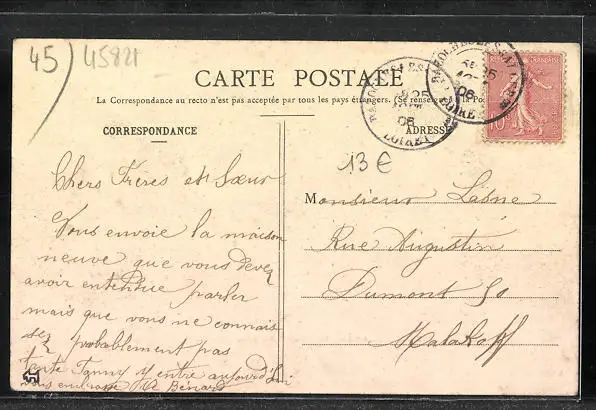 45) 45821
CARTE POSTALE
La Correspondance au recto n'est pas acceptée par tous les pays étrangers. (Se renseigner à la Po
CORRESPONDANCE
ADRESSE
LOIRET
06
13 €
Chers Frères et Sœur
Vous envoie la maison
neuve que vous devez
avoir entendue parler
mais que vous ne connais
sez probablement pas
tente Fanny y entre aujourd'hui
vous embrasse Bénard
Monsieur Lesne
Rue Augustin
Dumont 50
Malakoff